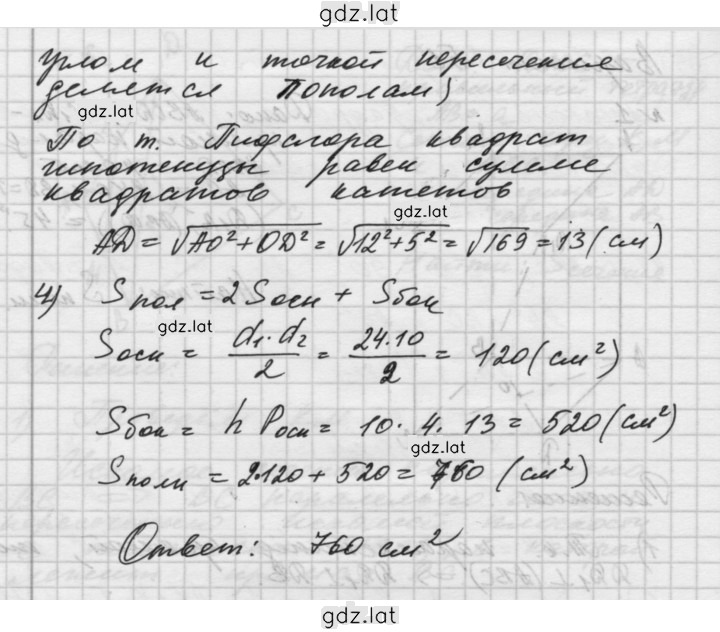 gdz.lat
углом и точкой пересечение
делется пополам)
gdz.lat
По т. Пифагора квадрат
гипотенузы равен сумме
квадратов катетов
gdz.lat
AD = √AO² + OD² = √12² + 5² = √169 = 13 (см)
4) Sпол = 2Sосн + Sбок
gdz.lat
Sосн = d₁·d₂/2 = 24·10/2 = 120 (см²)
Sбок = h Pосн = 10 · 4 · 13 = 520 (см²)
gdz.lat
Sполн = 2·120 + 520 = 760 (см²)
Ответ: 760 см²
gdz.lat